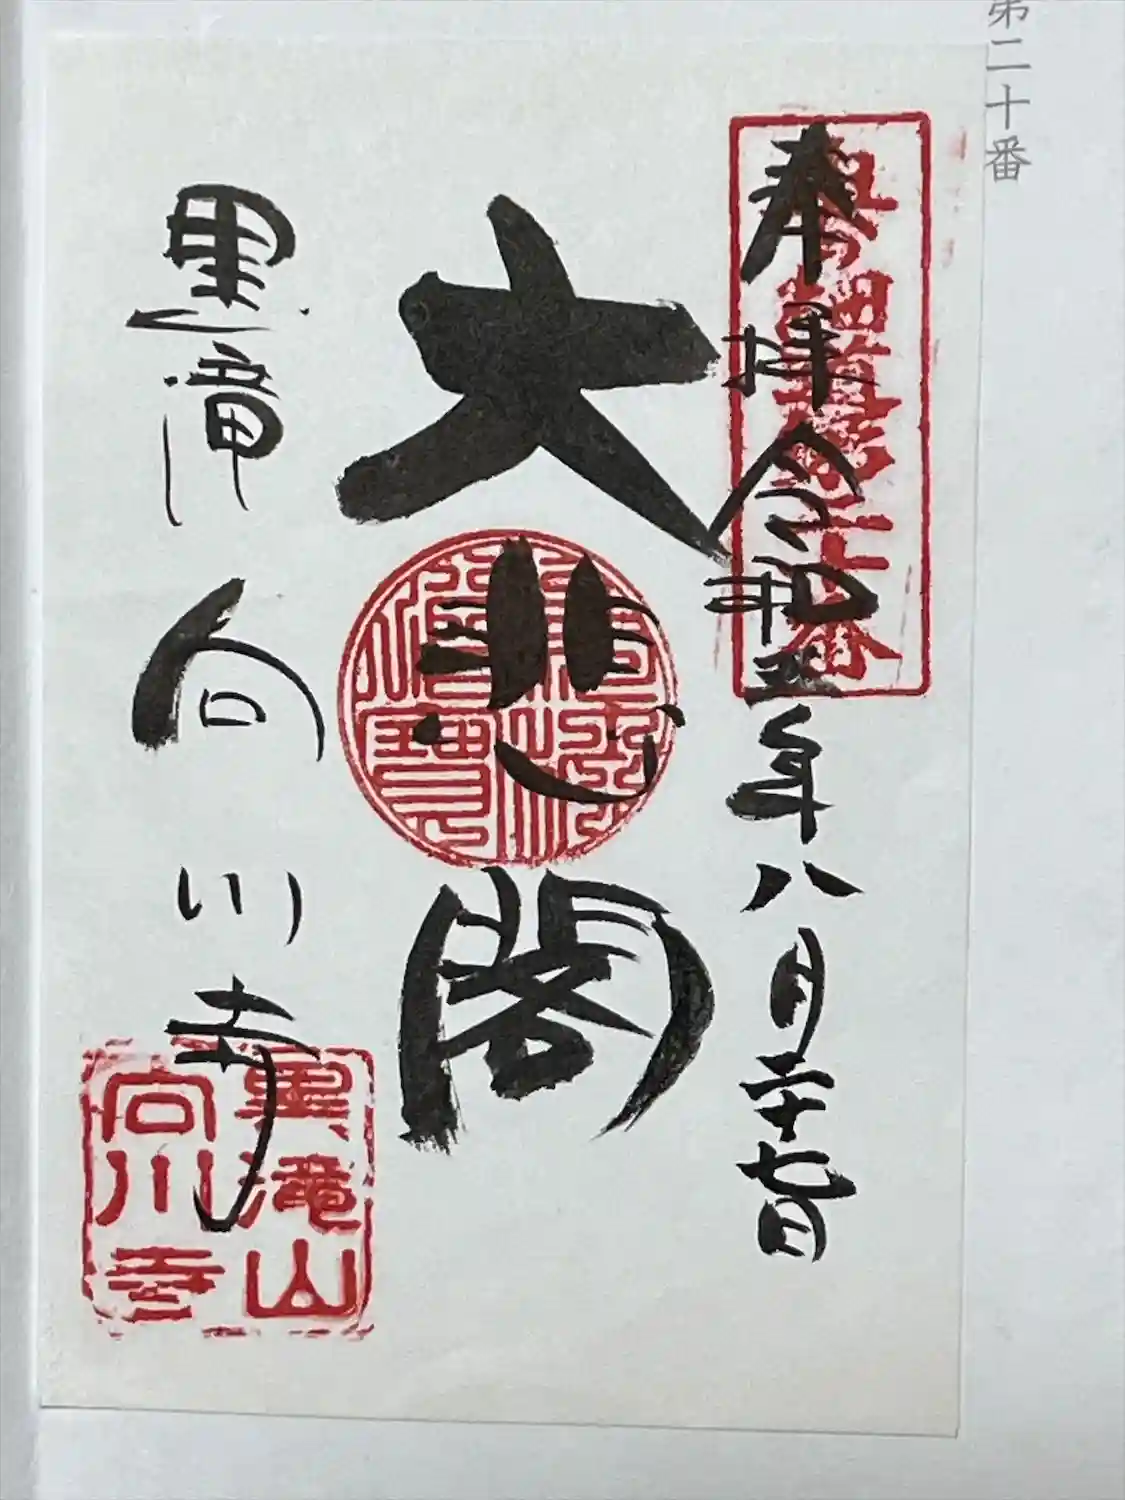 第二十番
奉拝 令和五年八月二十七日
大悲閣
黒滝 向川寺
黒滝山
向川寺